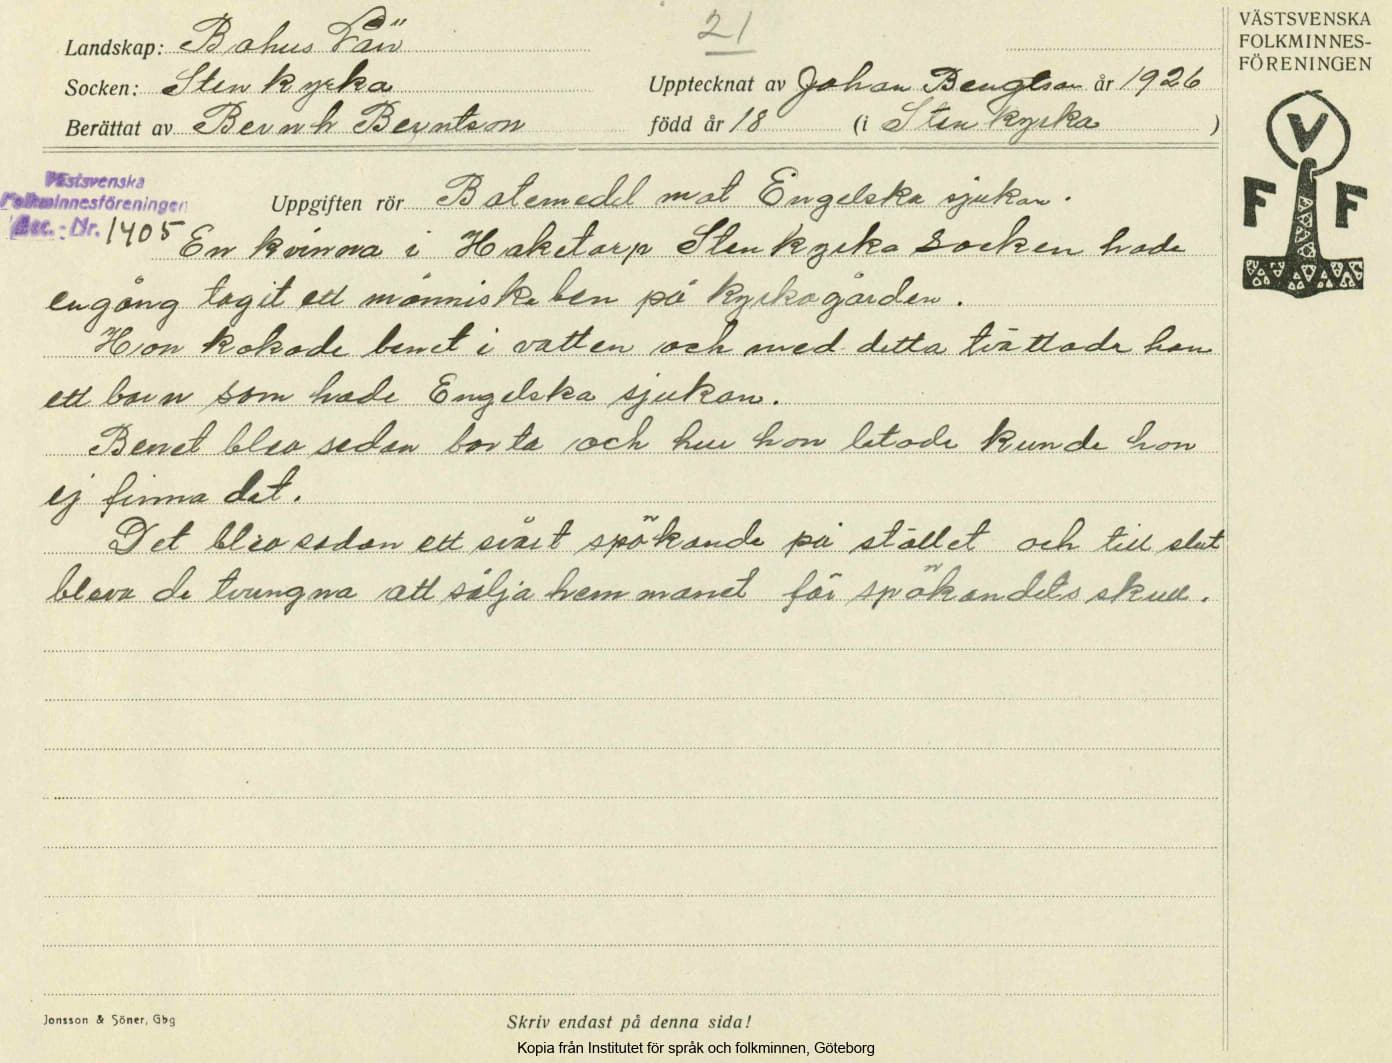 21
VÄSTSVENSKA
FOLKMINNES-
FÖRENINGEN
Landskap: Bohus Län
Socken: Stenkyrka Upptecknat av Johan Bengtson år 1926
Berättat av Bernh Berntson född år 18 (i Stenkyrka )
V
F F
Västsvenska
Folkminnesföreningen
Acc.-Nr. 1405
Uppgiften rör Botemedel mot Engelska sjukan.
En kvinna i Haketorp Stenkyrka Socken hade
engång tagit ett människoben på kyrkogården.
Hon kokade benet i vatten och med detta tvättade hon
ett barn som hade Engelska sjukan.
Benet blev sedan borta och hur hon letade kunde hon
ej finna det.
Det blev sedan ett svårt spökande på stället och till slut
bleva de tvungna att sälja hemmanet för spökandets skull.
Jonsson & Söner, Gbg
Skriv endast på denna sida!
Kopia från Institutet för språk och folkminnen, Göteborg